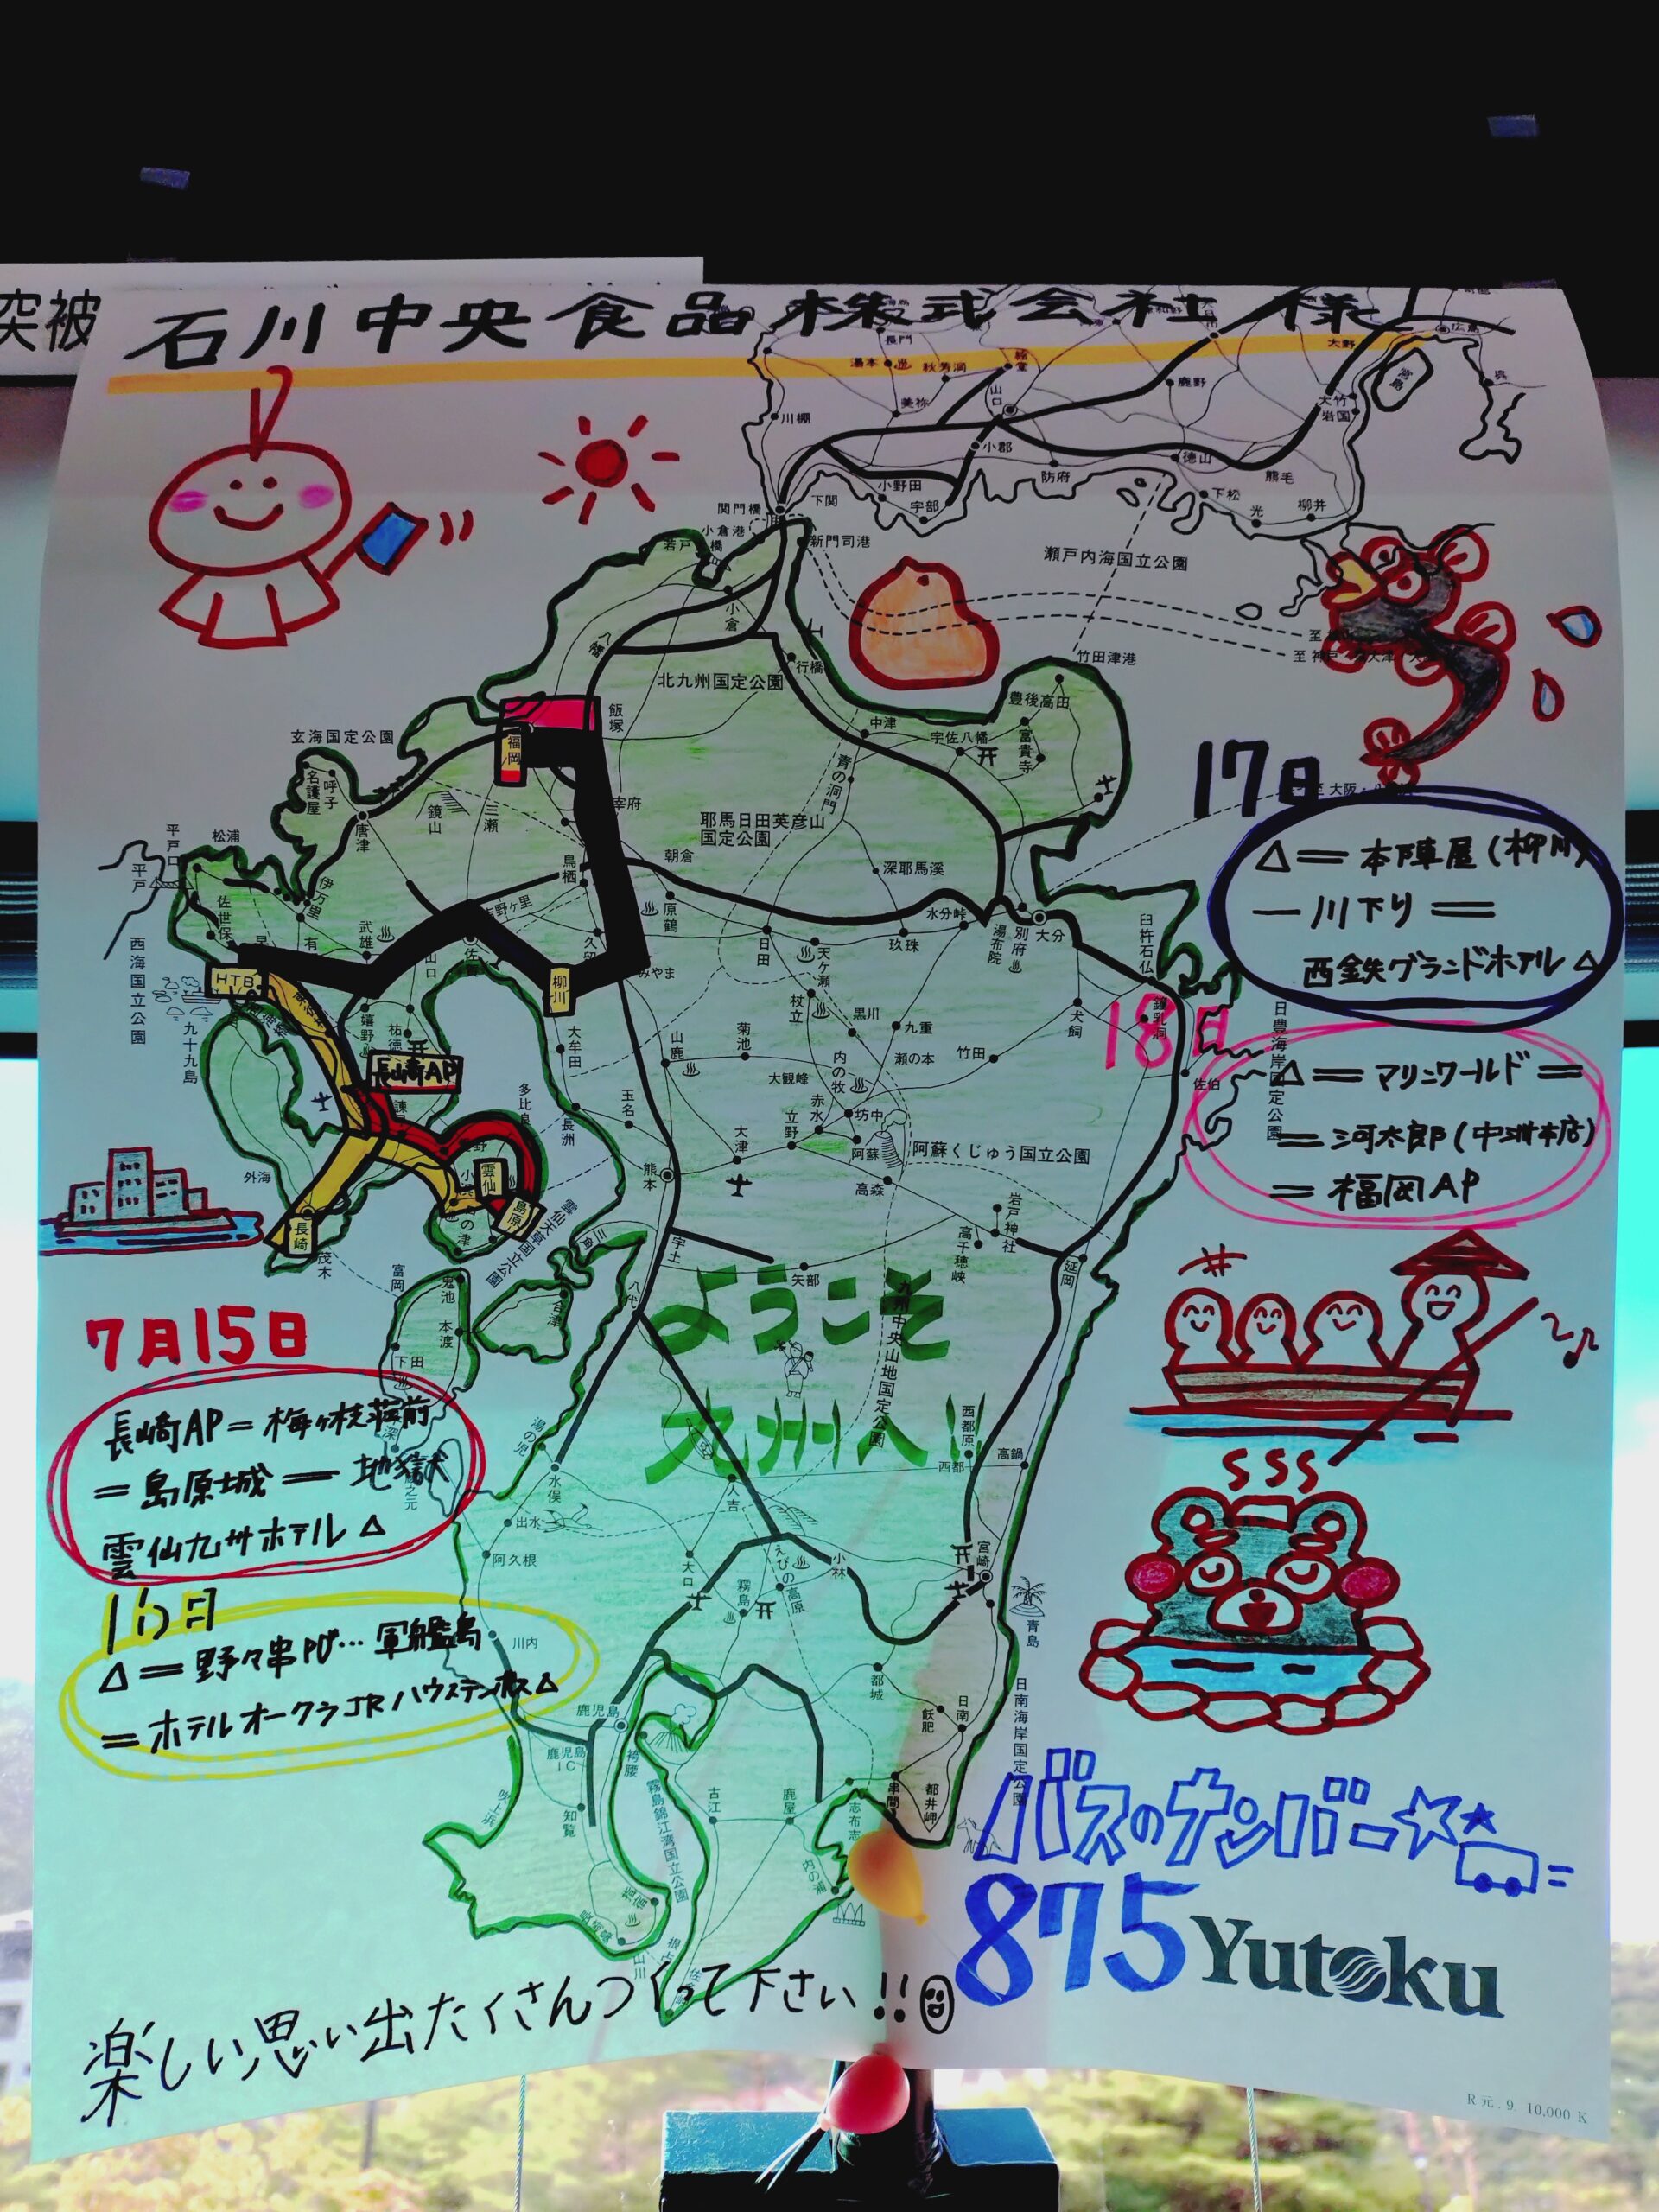 突被
石川中央食品株式会社 様
広島
大野
宮島
呉
長門
湯本
秋芳洞
美祢
山口
鹿野
大竹
岩国
川棚
小郡
防府
徳山
熊毛
下松
光
柳井
小野田
宇部
下関
関門橋
小倉港
若戸大橋
新門司港
瀬戸内海国立公園
小倉
八幡
行橋
竹田津港
北九州国定公園
豊後高田
富貴寺
中津
宇佐八幡
青の洞門
飯塚
福岡
玄海国定公園
名護屋
呼子
唐津
鏡山
三瀬
耶馬日田英彦山
国定公園
朝倉
深耶馬溪
鳥栖
原鶴
日田
天ヶ瀬
玖珠
水分峠
湯布院
別府
大分
臼杵石仏
平戸口
松浦
平戸
伊万里
佐世保
武雄
西海国立公園
九十九島
HTB
柳川
みやま
嬉野
祐徳
大牟田
山鹿
菊池
杖立
黒川
九重
瀬の本
竹田
犬飼
鍾乳洞
佐伯
日豊海岸国定公園
大観峰
内の牧
長崎AP
多比良
長洲
玉名
大津
立野
赤水
坊中
阿蘇
阿蘇くじゅう国立公園
高森
熊本
雲仙
島原
長崎
茂木
外海
雲仙天草国立公園
三角
宇土
矢部
岩戸神社
高千穂峡
延岡
17日
△＝本陣屋(柳川)
ー川下り＝
西鉄グランドホテル△
18日
△＝マリンワールド＝
＝河太郎(中洲本店)
＝福岡AP
富岡
鬼池
本渡
下田
合津
八代
ようこそ
九州へ!!
九州中央山地国定公園
7月15日
長崎AP＝梅ヶ枝荘前
＝島原城＝地獄
雲仙九州ホテル△
湯の児
水俣
出水
阿久根
人吉
西都原
西都
高鍋
大口
霧島
えびの高原
小林
宮崎
青島
16日
△＝野々串PU…軍艦島
＝ホテルオークラJRハウステンボス△
川内
鹿児島
鹿児島
IC
袴腰
都城
飫肥
日南
日南海岸国定公園
吹上浜
知覧
霧島錦江湾国立公園
古江
鹿屋
志布志
串間
都井岬
内の浦
指宿
山川
根占
バスのナンバー☆★
875
Yutoku
楽しい思い出たくさんつくって下さい!!
R元.9. 10,000 K